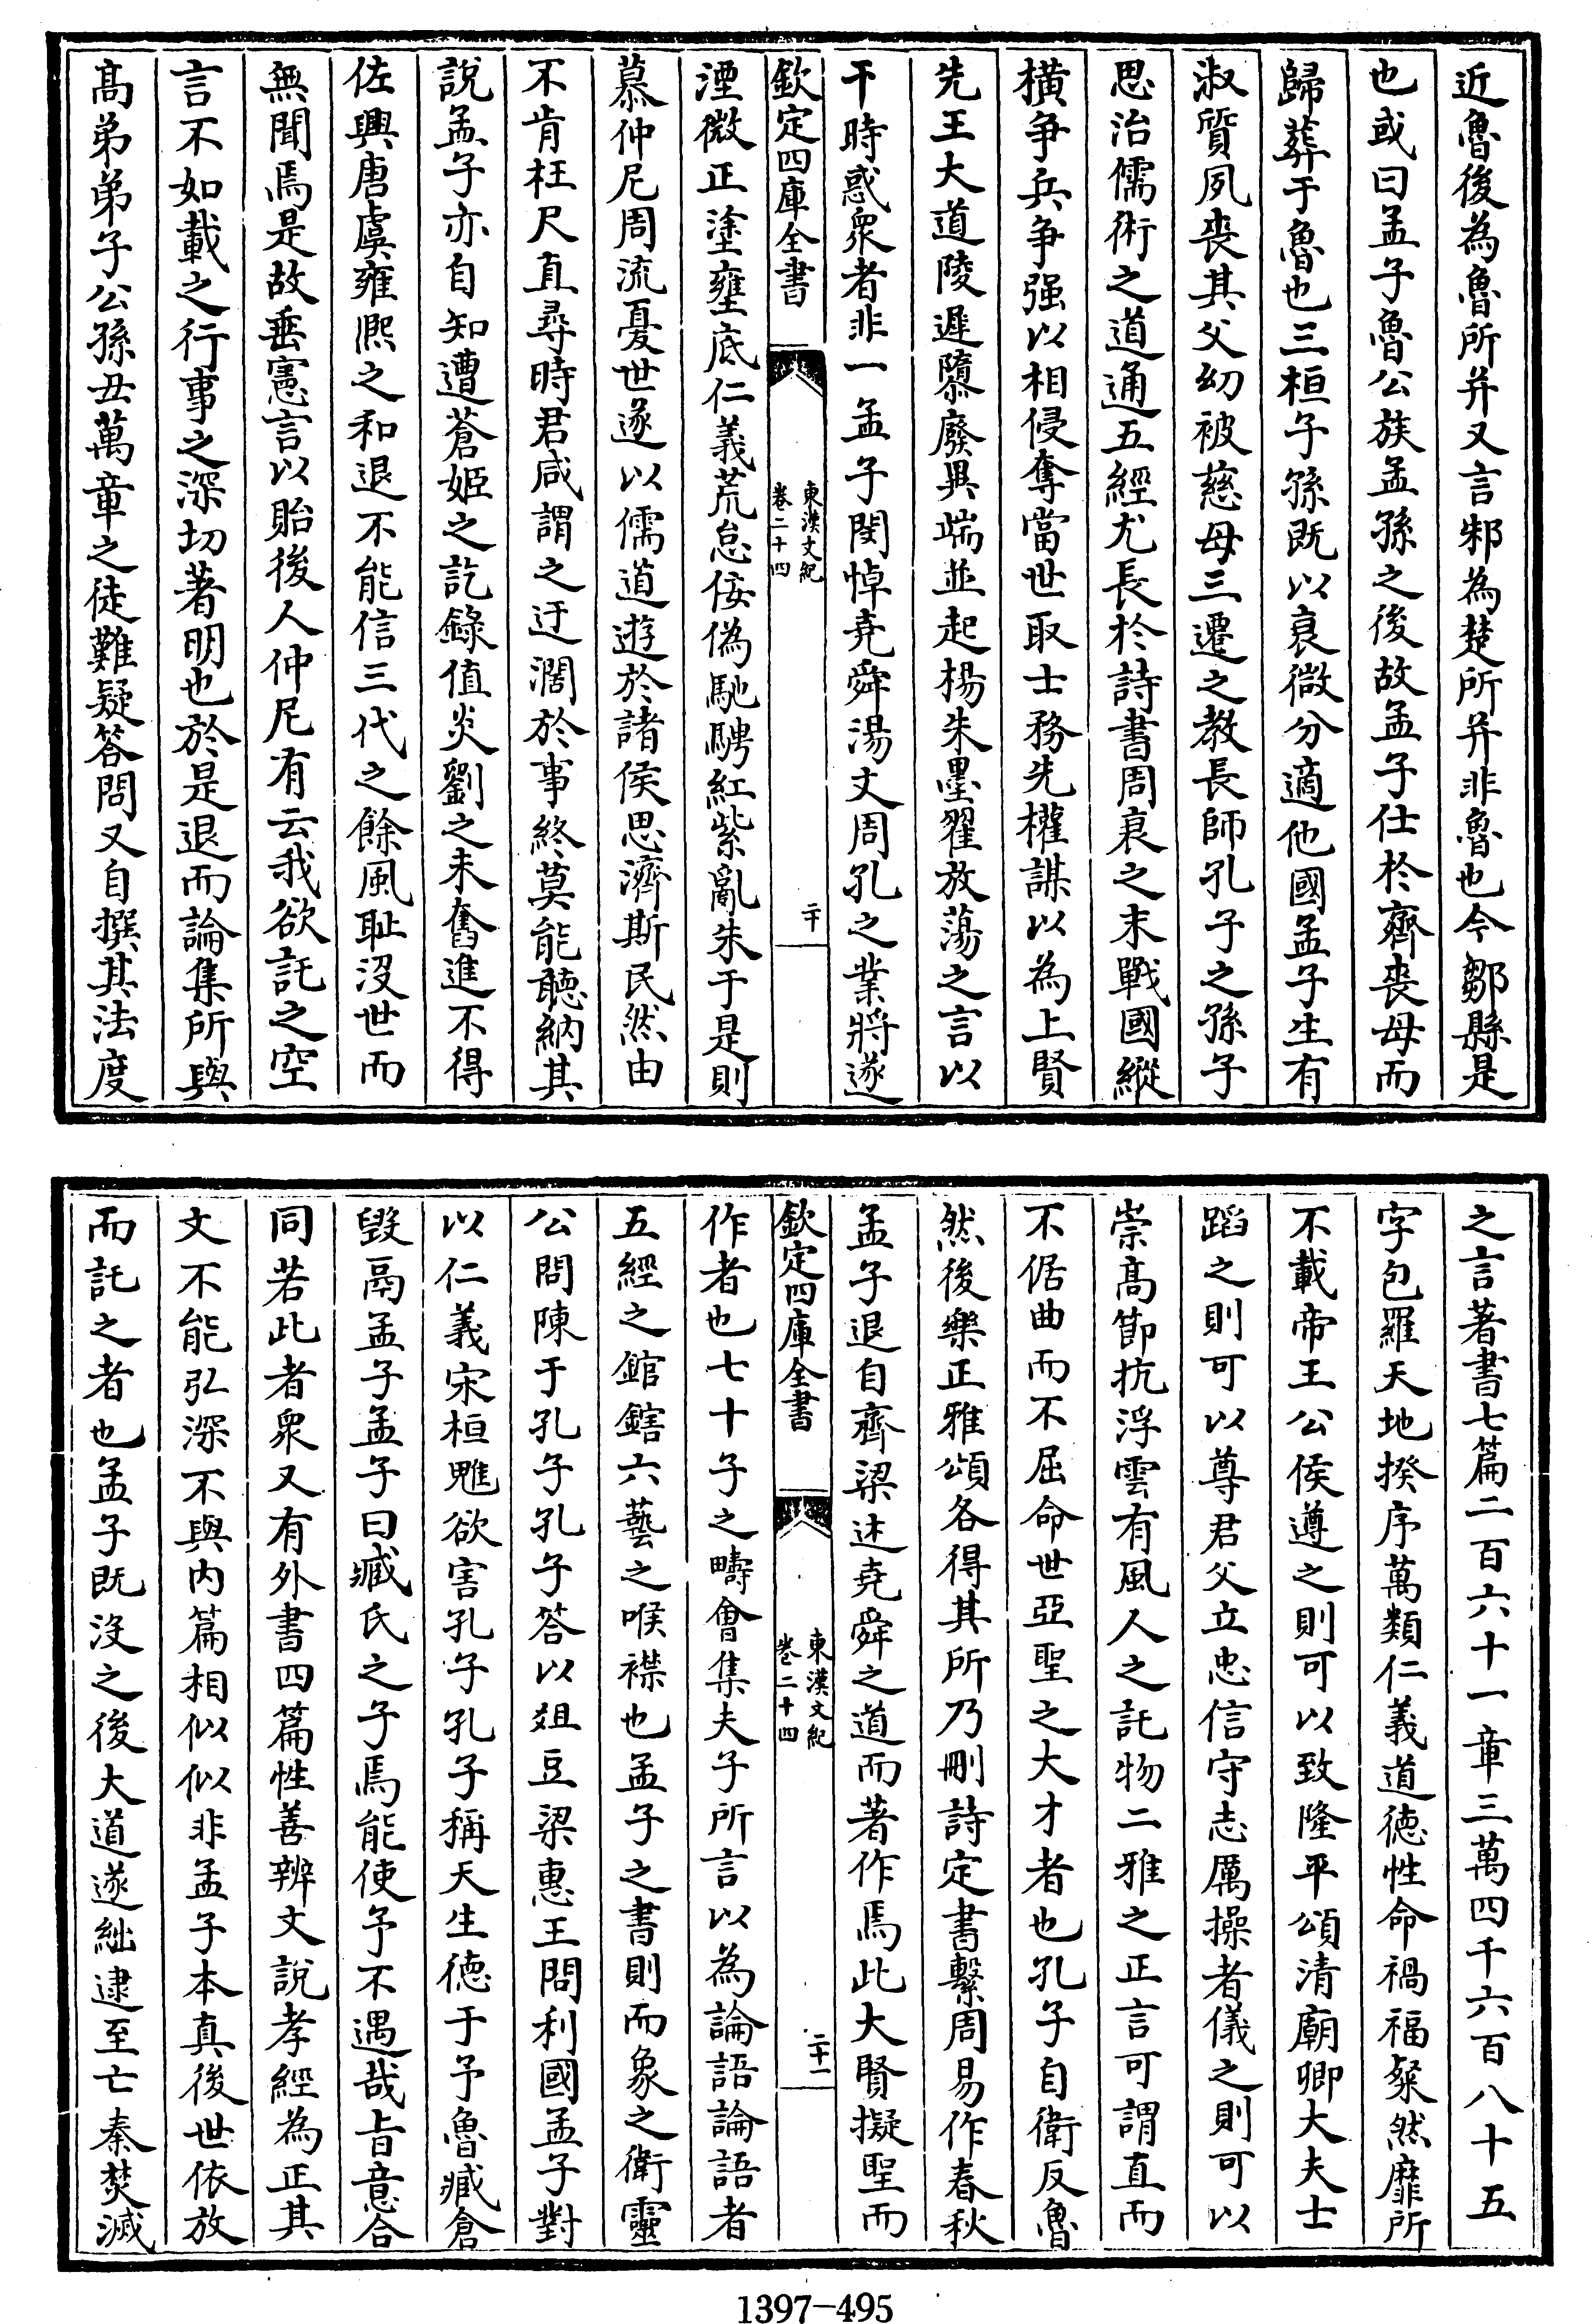 近魯後為魯所并又言邾為楚所并非魯也今鄒縣是
也或曰孟子魯公族孟孫之後故孟子仕於齊喪母而
歸葬于魯也三桓子孫既以衰微分適他國孟子生有
淑質夙喪其父幼被慈母三遷之教長師孔子之孫子
思治儒術之道通五經尤長於詩書周衰之末戰國縱
橫争兵争强以相侵奪當世取士務先權謀以為上賢
先王大道陵遲隳廢異端並起楊朱墨翟放蕩之言以
干時惑衆者非一孟子閔悼堯舜湯文周孔之業將遂
欽定四庫全書
東漢文紀
卷二十四
二十
湮微正塗壅底仁義荒怠佞偽馳騁紅紫亂朱于是則
慕仲尼周流憂世遂以儒道遊於諸侯思濟斯民然由
不肯枉尺直尋時君咸謂之迂濶於事終莫能聽納其
說孟子亦自知遭蒼姬之訖錄值炎劉之未奮進不得
佐興唐虞雍熙之和退不能信三代之餘風耻没世而
無聞焉是故垂憲言以貽後人仲尼有云我欲託之空
言不如載之行事之深切著明也於是退而論集所與
髙弟弟子公孫丑萬章之徒難疑答問又自撰其法度
之言著書七篇二百六十一章三萬四千六百八十五
字包羅天地揆序萬類仁義道德性命禍福粲然靡所
不載帝王公侯遵之則可以致隆平頌清廟卿大夫士
蹈之則可以尊君父立忠信守志厲操者儀之則可以
崇髙節抗浮雲有風人之託物二雅之正言可謂直而
不倨曲而不屈命世亞聖之大才者也孔子自衛反魯
然後樂正雅頌各得其所乃刪詩定書繫周易作春秋
孟子退自齊梁述堯舜之道而著作焉此大賢擬聖而
欽定四庫全書
東漢文紀
卷二十四
二十一
作者也七十子之疇會集夫子所言以為論語論語者
五經之錧鎋六藝之喉襟也孟子之書則而象之衛靈
公問陳于孔子孔子答以俎豆梁惠王問利國孟子對
以仁義宋桓魋欲害孔子孔子稱天生德于予魯臧倉
毁鬲孟子孟子曰臧氏之子焉能使予不遇哉旨意合
同若此者衆又有外書四篇性善辨文說孝經為正其
文不能弘深不與内篇相似似非孟子本真後世依放
而託之者也孟子既没之後大道遂絀逮至亡秦焚滅
1397-495